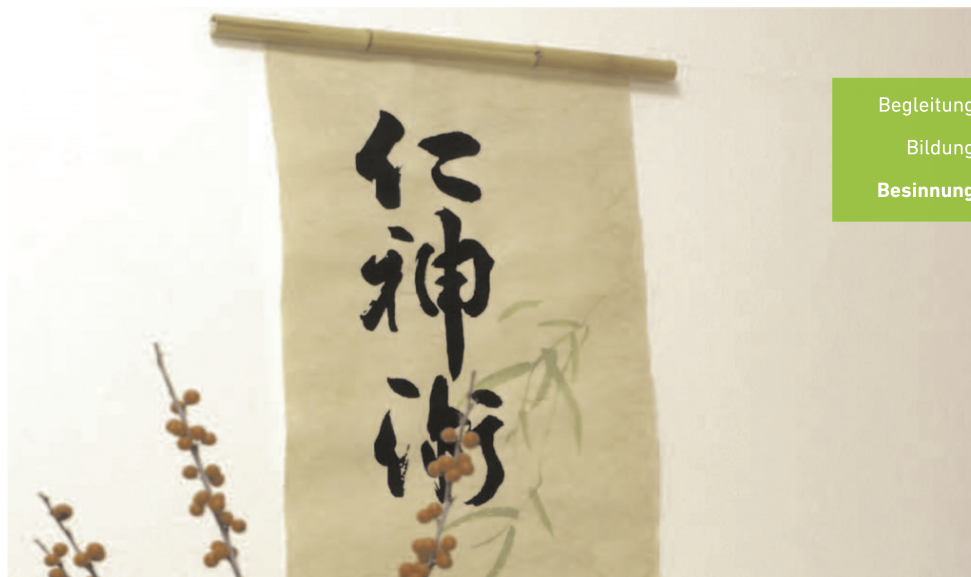 仁
神
術
Begleitung
Bildung
Besinnung